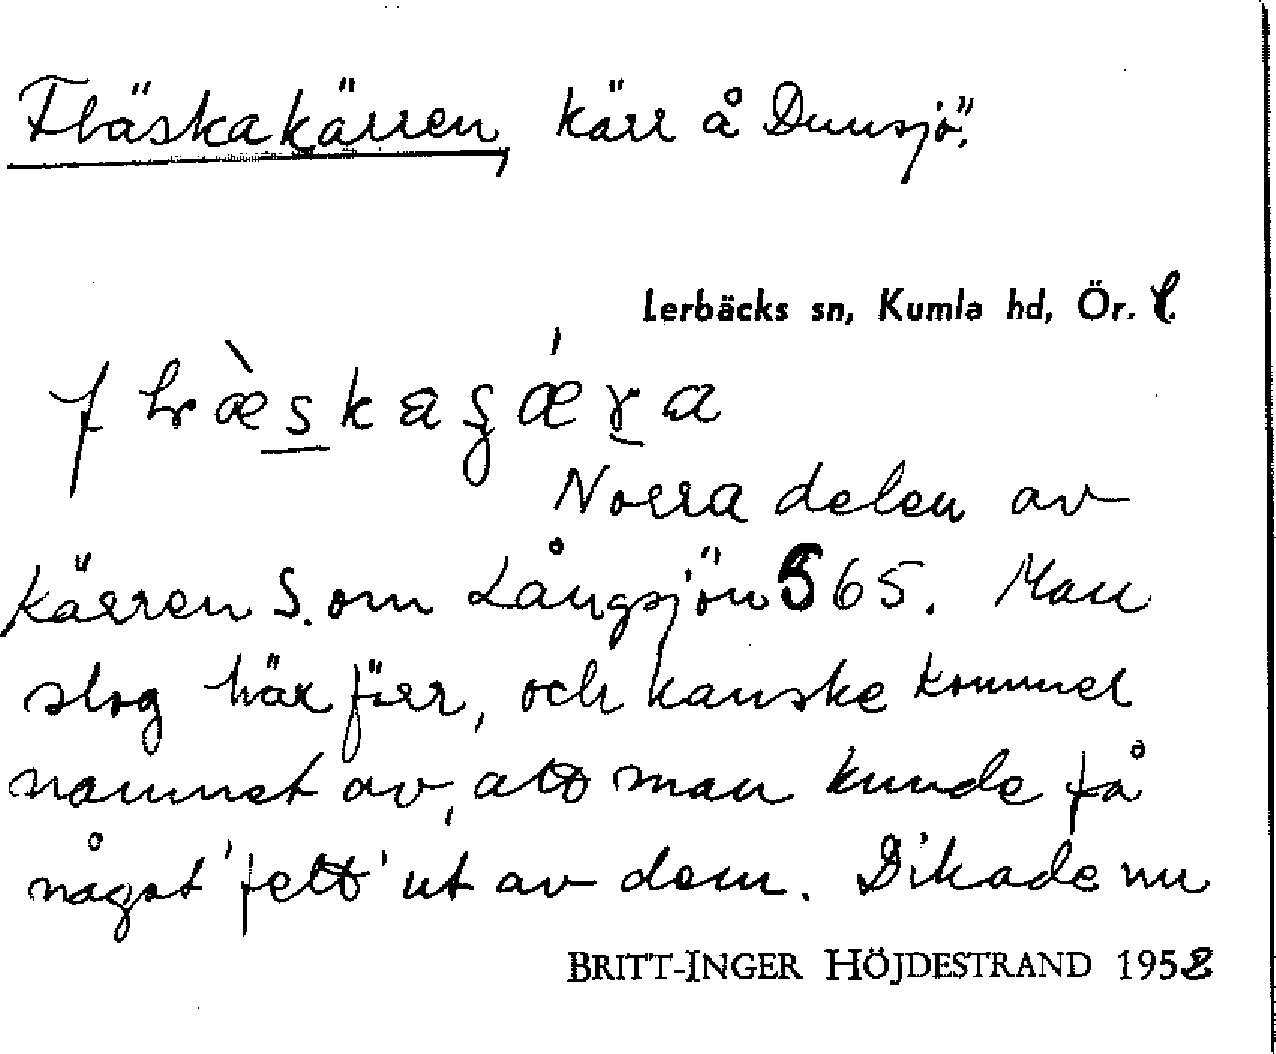 Fläskakärren, kärr å Dunsjö.
Lerbäcks sn, Kumla hd, Ör. l.
Norra delen av
kärren S. om Långsjön 565. Man
slog här förr, och kanske kommer
namnet av, att man kunde få
något 'fett' ut av dem. Dikade nu
BRITT-INGER HÖJDESTRAND 1952